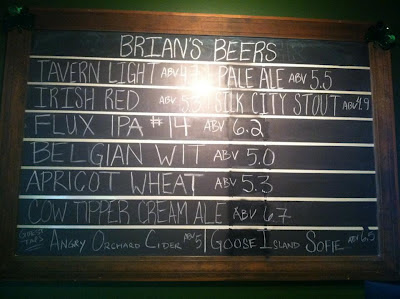 BRIAN'S BEERS
TAVERN LIGHT ABV 4.7 PALE ALE ABV 5.5
IRISH RED ABV 5.3 SILK CITY STOUT ABV 4.9
FLUX IPA #14 ABV 6.2
BELGIAN WIT ABV 5.0
APRICOT WHEAT ABV 5.3
COW TIPPER CREAM ALE ABV 6.7
GUEST TAPS ANGRY ORCHARD CIDER ABV 5 | GOOSE ISLAND SOFIE ABV 6.5